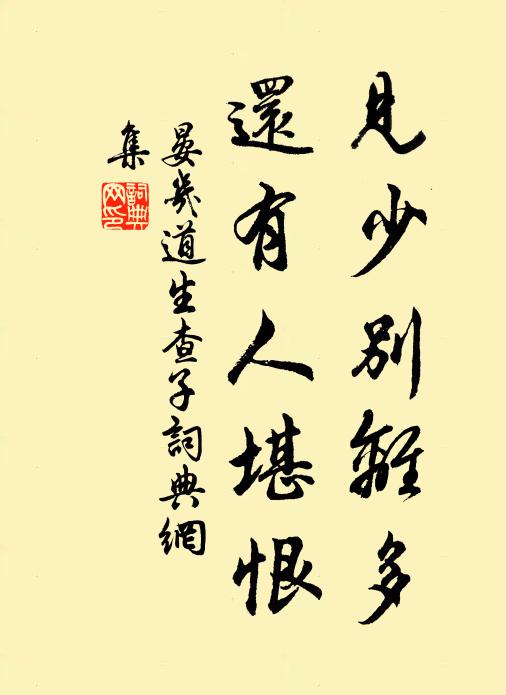 見少別離多
還有人堪恨
晏幾道生查子詞典網
集
詞典网印